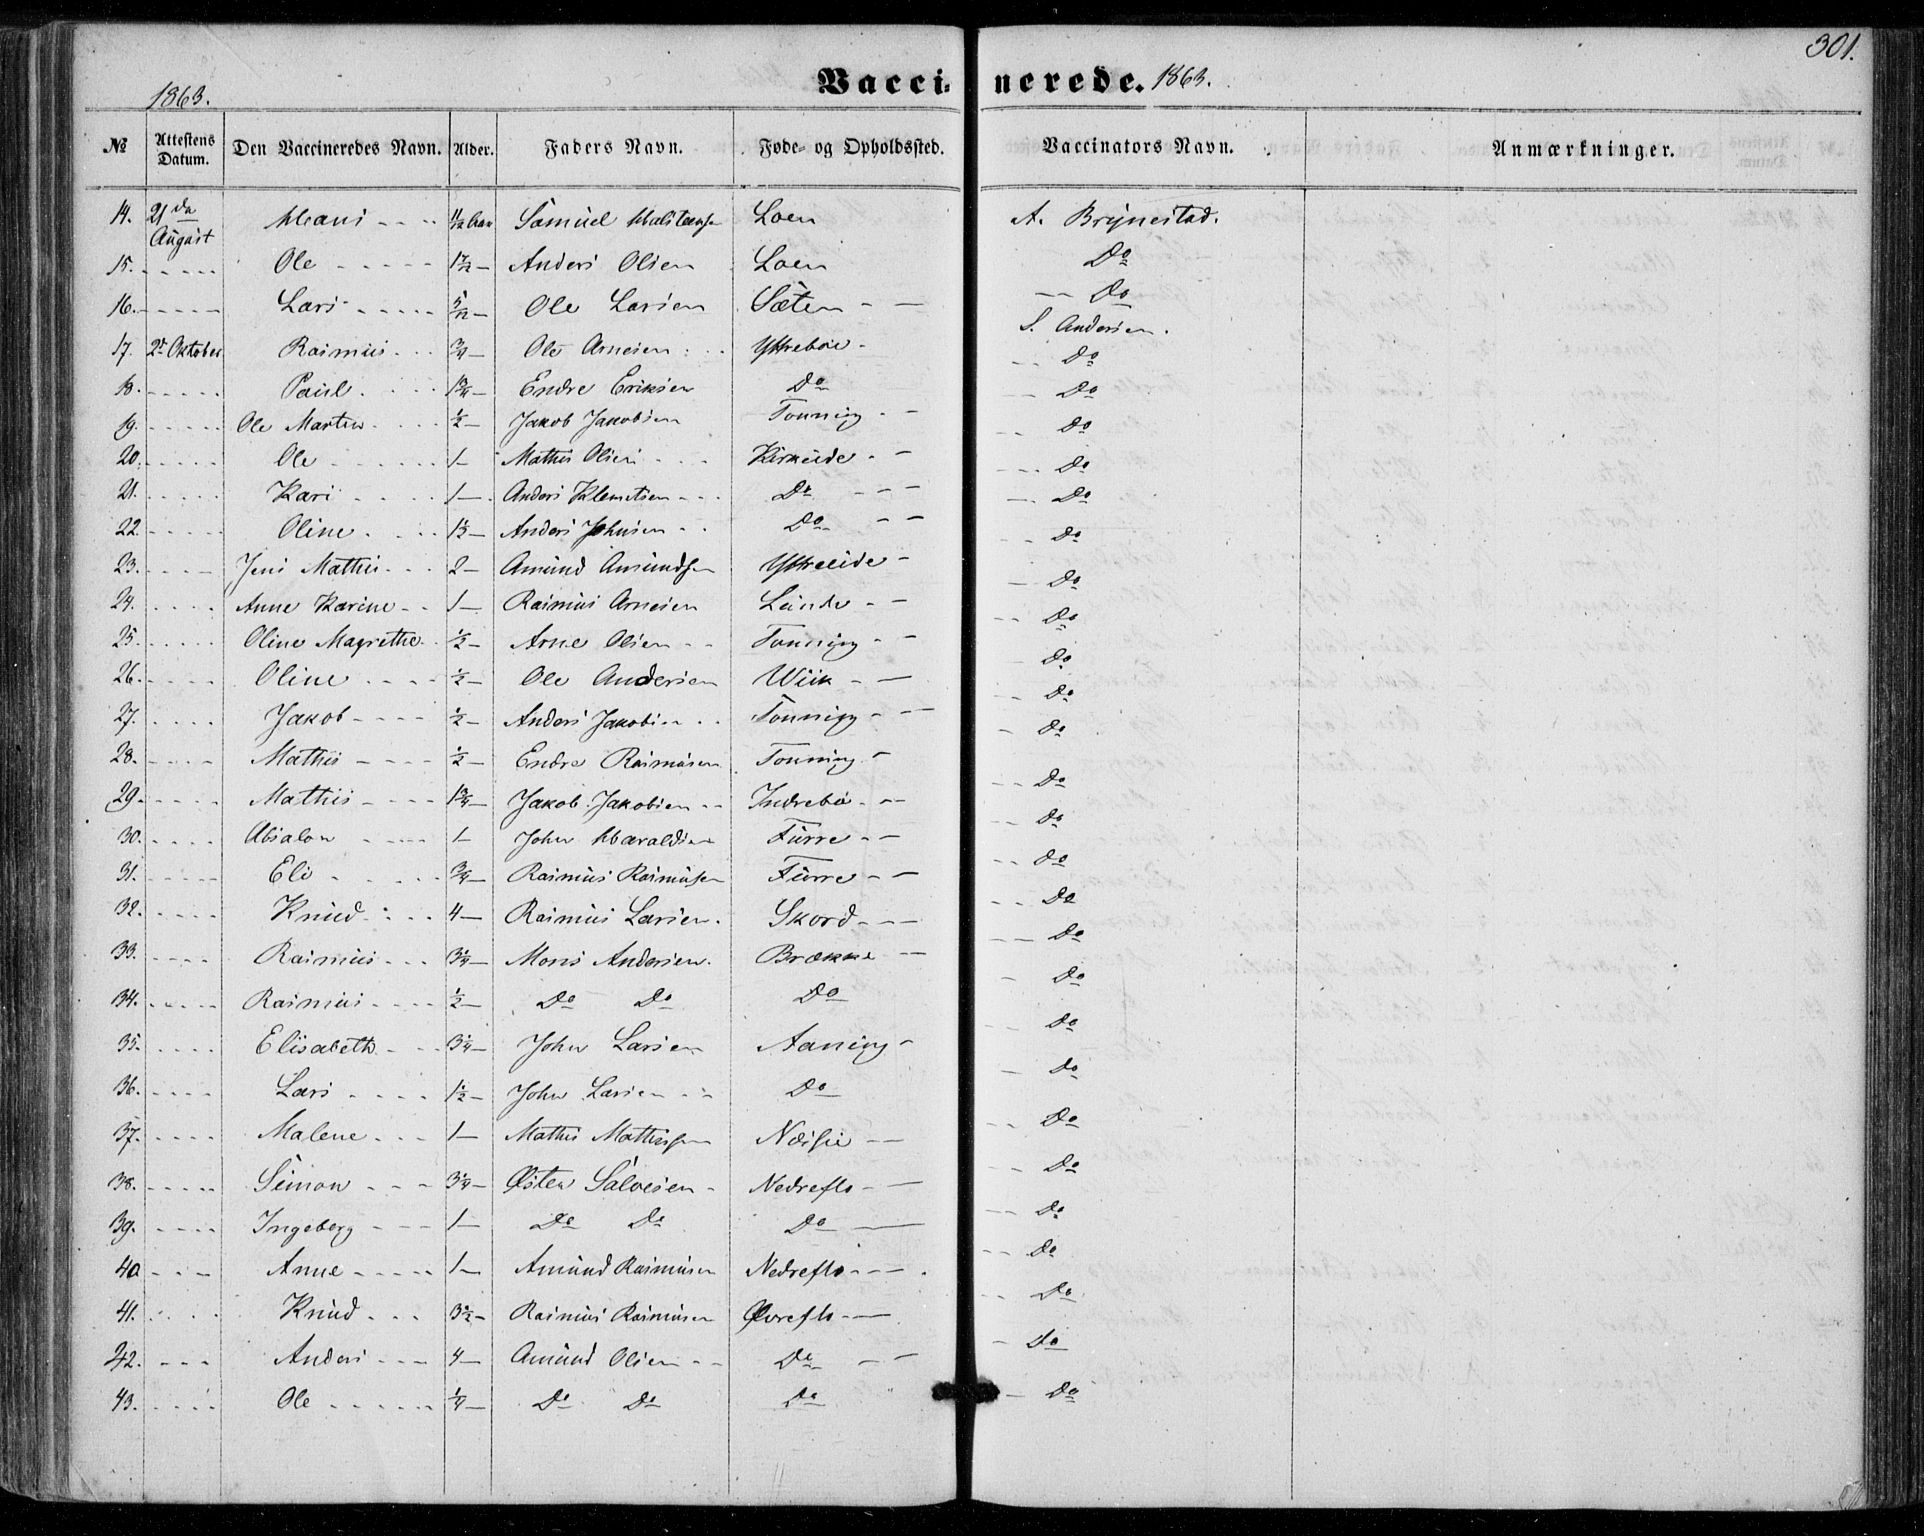 301.
1863. Vaccinerede. 1863.
№ Attestens Datum. Den Vaccineredes Navn. Alder. Faders Navn. Føde- og Opholdssted. Vaccinators Navn. Anmærkninger.
14. 21da August Hans Samuel Loen A. Brynestad.
15. Ole Anders Olsen Loen Do
16. Lars 5/12 Ole Larsen Sæten Do
17. 2d Oktober Rasmus 3/4 Ole Arnesen Yttrebøe S. Andersen. Do
18. Paul 1 3/4 Endre Eriksen Do Do
19. Ole Martin 1/2 Jakob Jakobsen Tonning Do
20. Ole 1 Mathis Olsen Kirkeide Do
21. Kari 1 Anders Klemetsen Do Do
22. Oline 1 1/2 Anders Johnsen Do Do
23. Jens Mathis 2 Amund Amundsen Yttreeide Do
24. Anne Karine 1 Rasmus Arnesen Lunde Do
25. Oline Magrethe 1/2 Arne Olsen Tonning Do
26. Oline 1/2 Ole Andersen Wiik Do
27. Jakob 1/2 Anders Jakobsen Tonning Do
28. Mathis 1/2 Endre Rasmusen Tonning Do
29. Mathis 1 3/4 Jakob Jakobsen Indrebø Do
30. Absalon 1 John Haraldsen Furre Do
31. Eli 3/4 Rasmus Rasmusen Furre Do
32. Knud 4 Rasmus Larsen Skord Do
33. Rasmus 3 1/4 Mons Andersen Brække Do
34. Rasmus 1/2 Do Do Do Do
35. Elisabeth 3 1/4 John Larsen Aaning Do
36. Lars 1 1/2 John Larsen Do Do
37. Malene 1 Mathis Mathissen Do
38. Simon 3 1/4 Østen Salvesen Nedreflo Do
39. Ingeberg 1 Do Do Do Do
40 Anne 1 Amund Rasmusen Nedreflo Do
41. Knud 3 1/2 Rasmus Rasmusen Øvreflo Do
42. Anders 4 Amund Olsen Do Do
43. Ole 1/4 Do Do Do Do